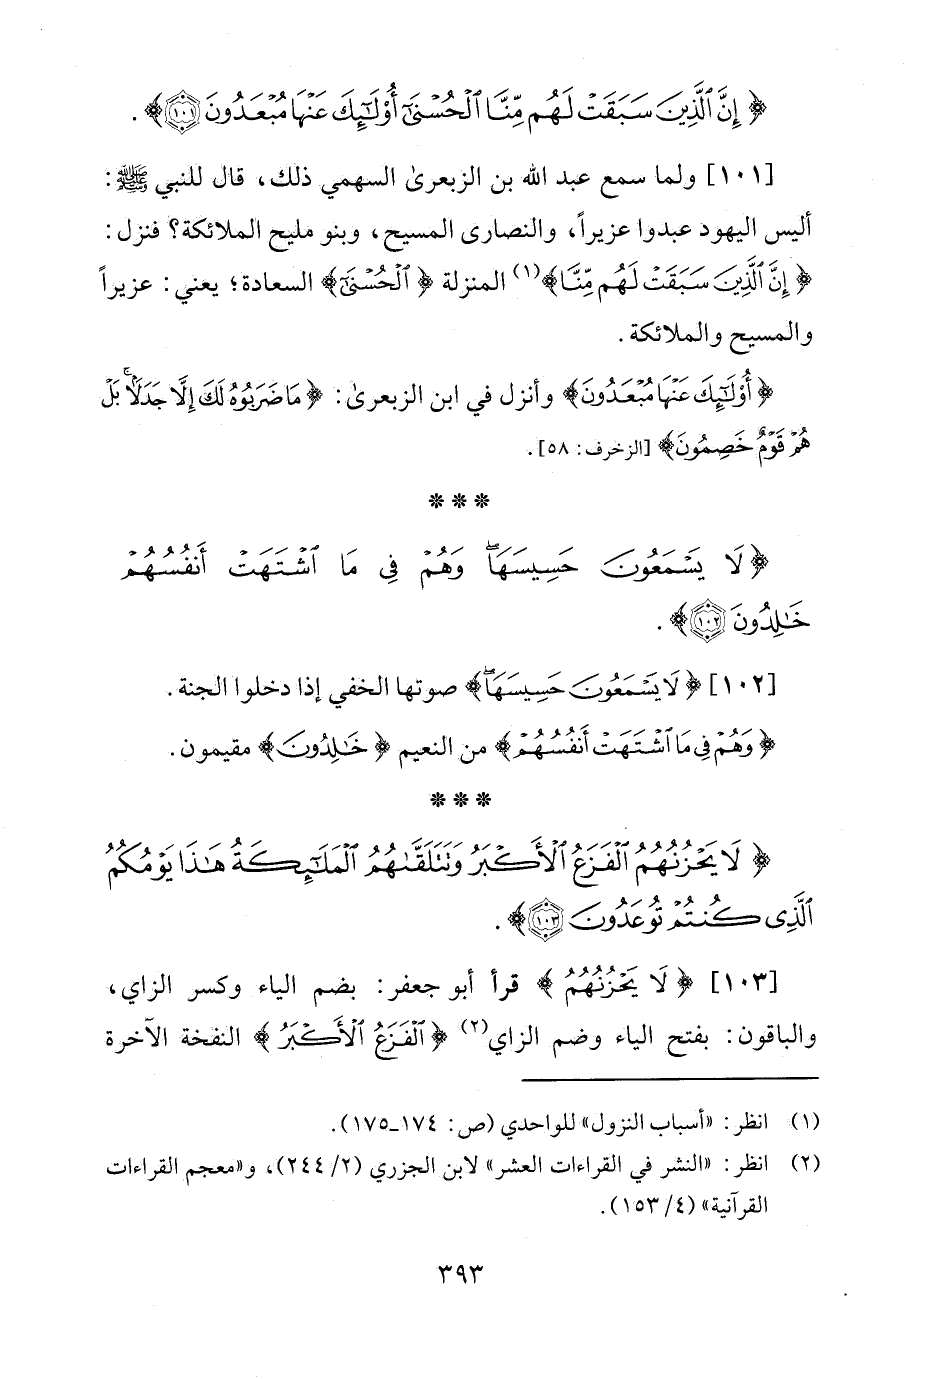 ﴿ إِنَّ ٱلَّذِينَ سَبَقَتْ لَهُم مِّنَّا ٱلْحُسْنَىٰٓ أُوْلَـٰٓئِكَ عَنْهَا مُبْعَدُونَ ١٠١ ﴾ .
[١٠١] ولما سمع عبد الله بن الزبعرىٰ السهمي ذلك، قال للنبي ﷺ :
أليس اليهود عبدوا عزيراً، والنصارى المسيح، وبنو مليح الملائكة؟ فنزل :
﴿ إِنَّ ٱلَّذِينَ سَبَقَتْ لَهُم مِّنَّا﴾(١) المنزلة ﴿ ٱلْحُسْنَىٰٓ﴾ السعادة؛ يعني: عزيراً
والمسيح والملائكة .
﴿ أُوْلَـٰٓئِكَ عَنْهَا مُبْعَدُونَ﴾ وأنزل في ابن الزبعرىٰ: ﴿ مَا ضَرَبُوهُ لَكَ إِلَّا جَدَلًۢا ۚ بَلْ
هُمْ قَوْمٌ خَصِمُونَ﴾ [الزخرف: ٥٨] .
* * *
﴿ لَا يَسْمَعُونَ حَسِيسَهَا ۖ وَهُمْ فِى مَا ٱشْتَهَتْ أَنفُسُهُمْ
خَـٰلِدُونَ ١٠٢ ﴾ .
[١٠٢] ﴿ لَا يَسْمَعُونَ حَسِيسَهَا ۖ ﴾ صوتها الخفي إذا دخلوا الجنة .
﴿ وَهُمْ فِى مَا ٱشْتَهَتْ أَنفُسُهُمْ ﴾ من النعيم ﴿ خَـٰلِدُونَ ﴾ مقيمون .
* * *
﴿ لَا يَحْزُنُهُمُ ٱلْفَزَعُ ٱلْأَكْبَرُ وَتَتَلَقَّىٰهُمُ ٱلْمَلَـٰٓئِكَةُ هَـٰذَا يَوْمُكُمُ
ٱلَّذِى كُنتُمْ تُوعَدُونَ ١٠٣ ﴾ .
[١٠٣] ﴿ لَا يَحْزُنُهُمُ ﴾ قرأ أبو جعفر: بضم الياء وكسر الزاي،
والباقون: بفتح الياء وضم الزاي(٢) ﴿ ٱلْفَزَعُ ٱلْأَكْبَرُ ﴾ النفخة الآخرة
(١) انظر: «أسباب النزول» للواحدي (ص: ١٧٤_١٧٥).
(٢) انظر: «النشر في القراءات العشر» لابن الجزري (٢/ ٢٤٤)، و«معجم القراءات
القرآنية» (٤/ ١٥٣).
٣٩٣